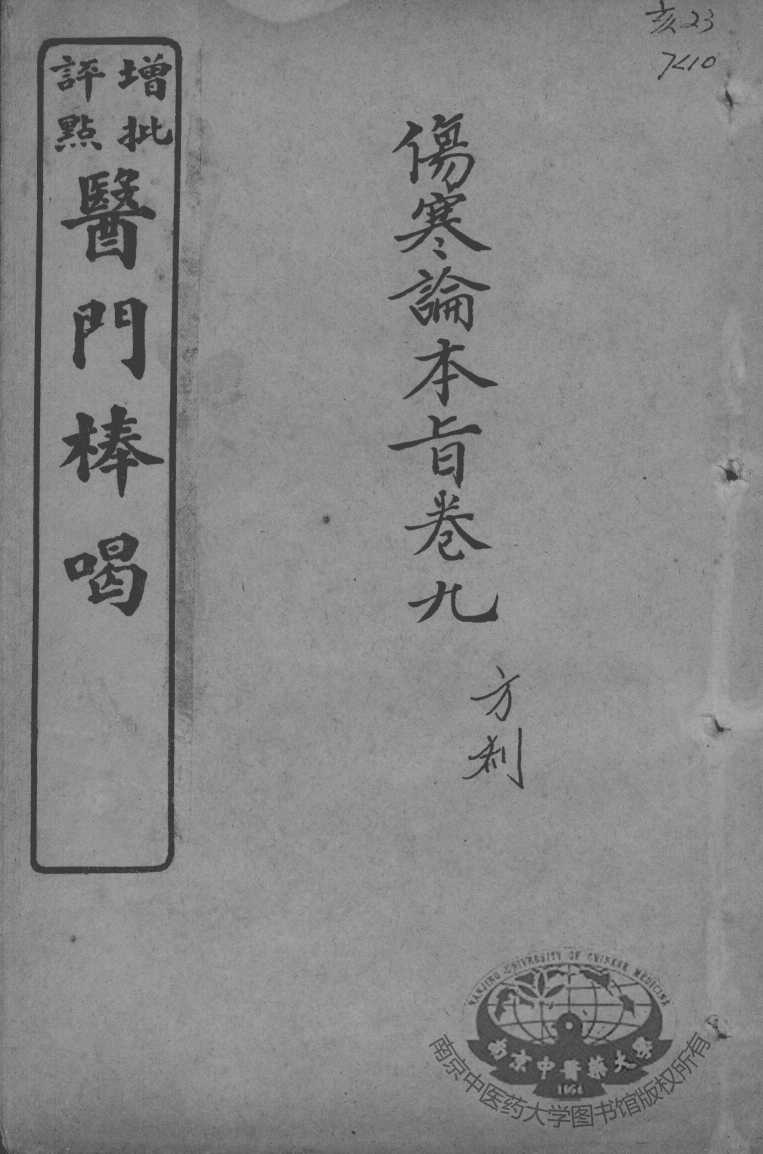 亥23
7<10
傷寒論本旨卷九
方剂
增批
評點
醫門棒喝
NANJING UNIVERSITY OF CHINESE MEDICINE
南京中醫藥大學
1954
南京中医药大学图书馆版权所有